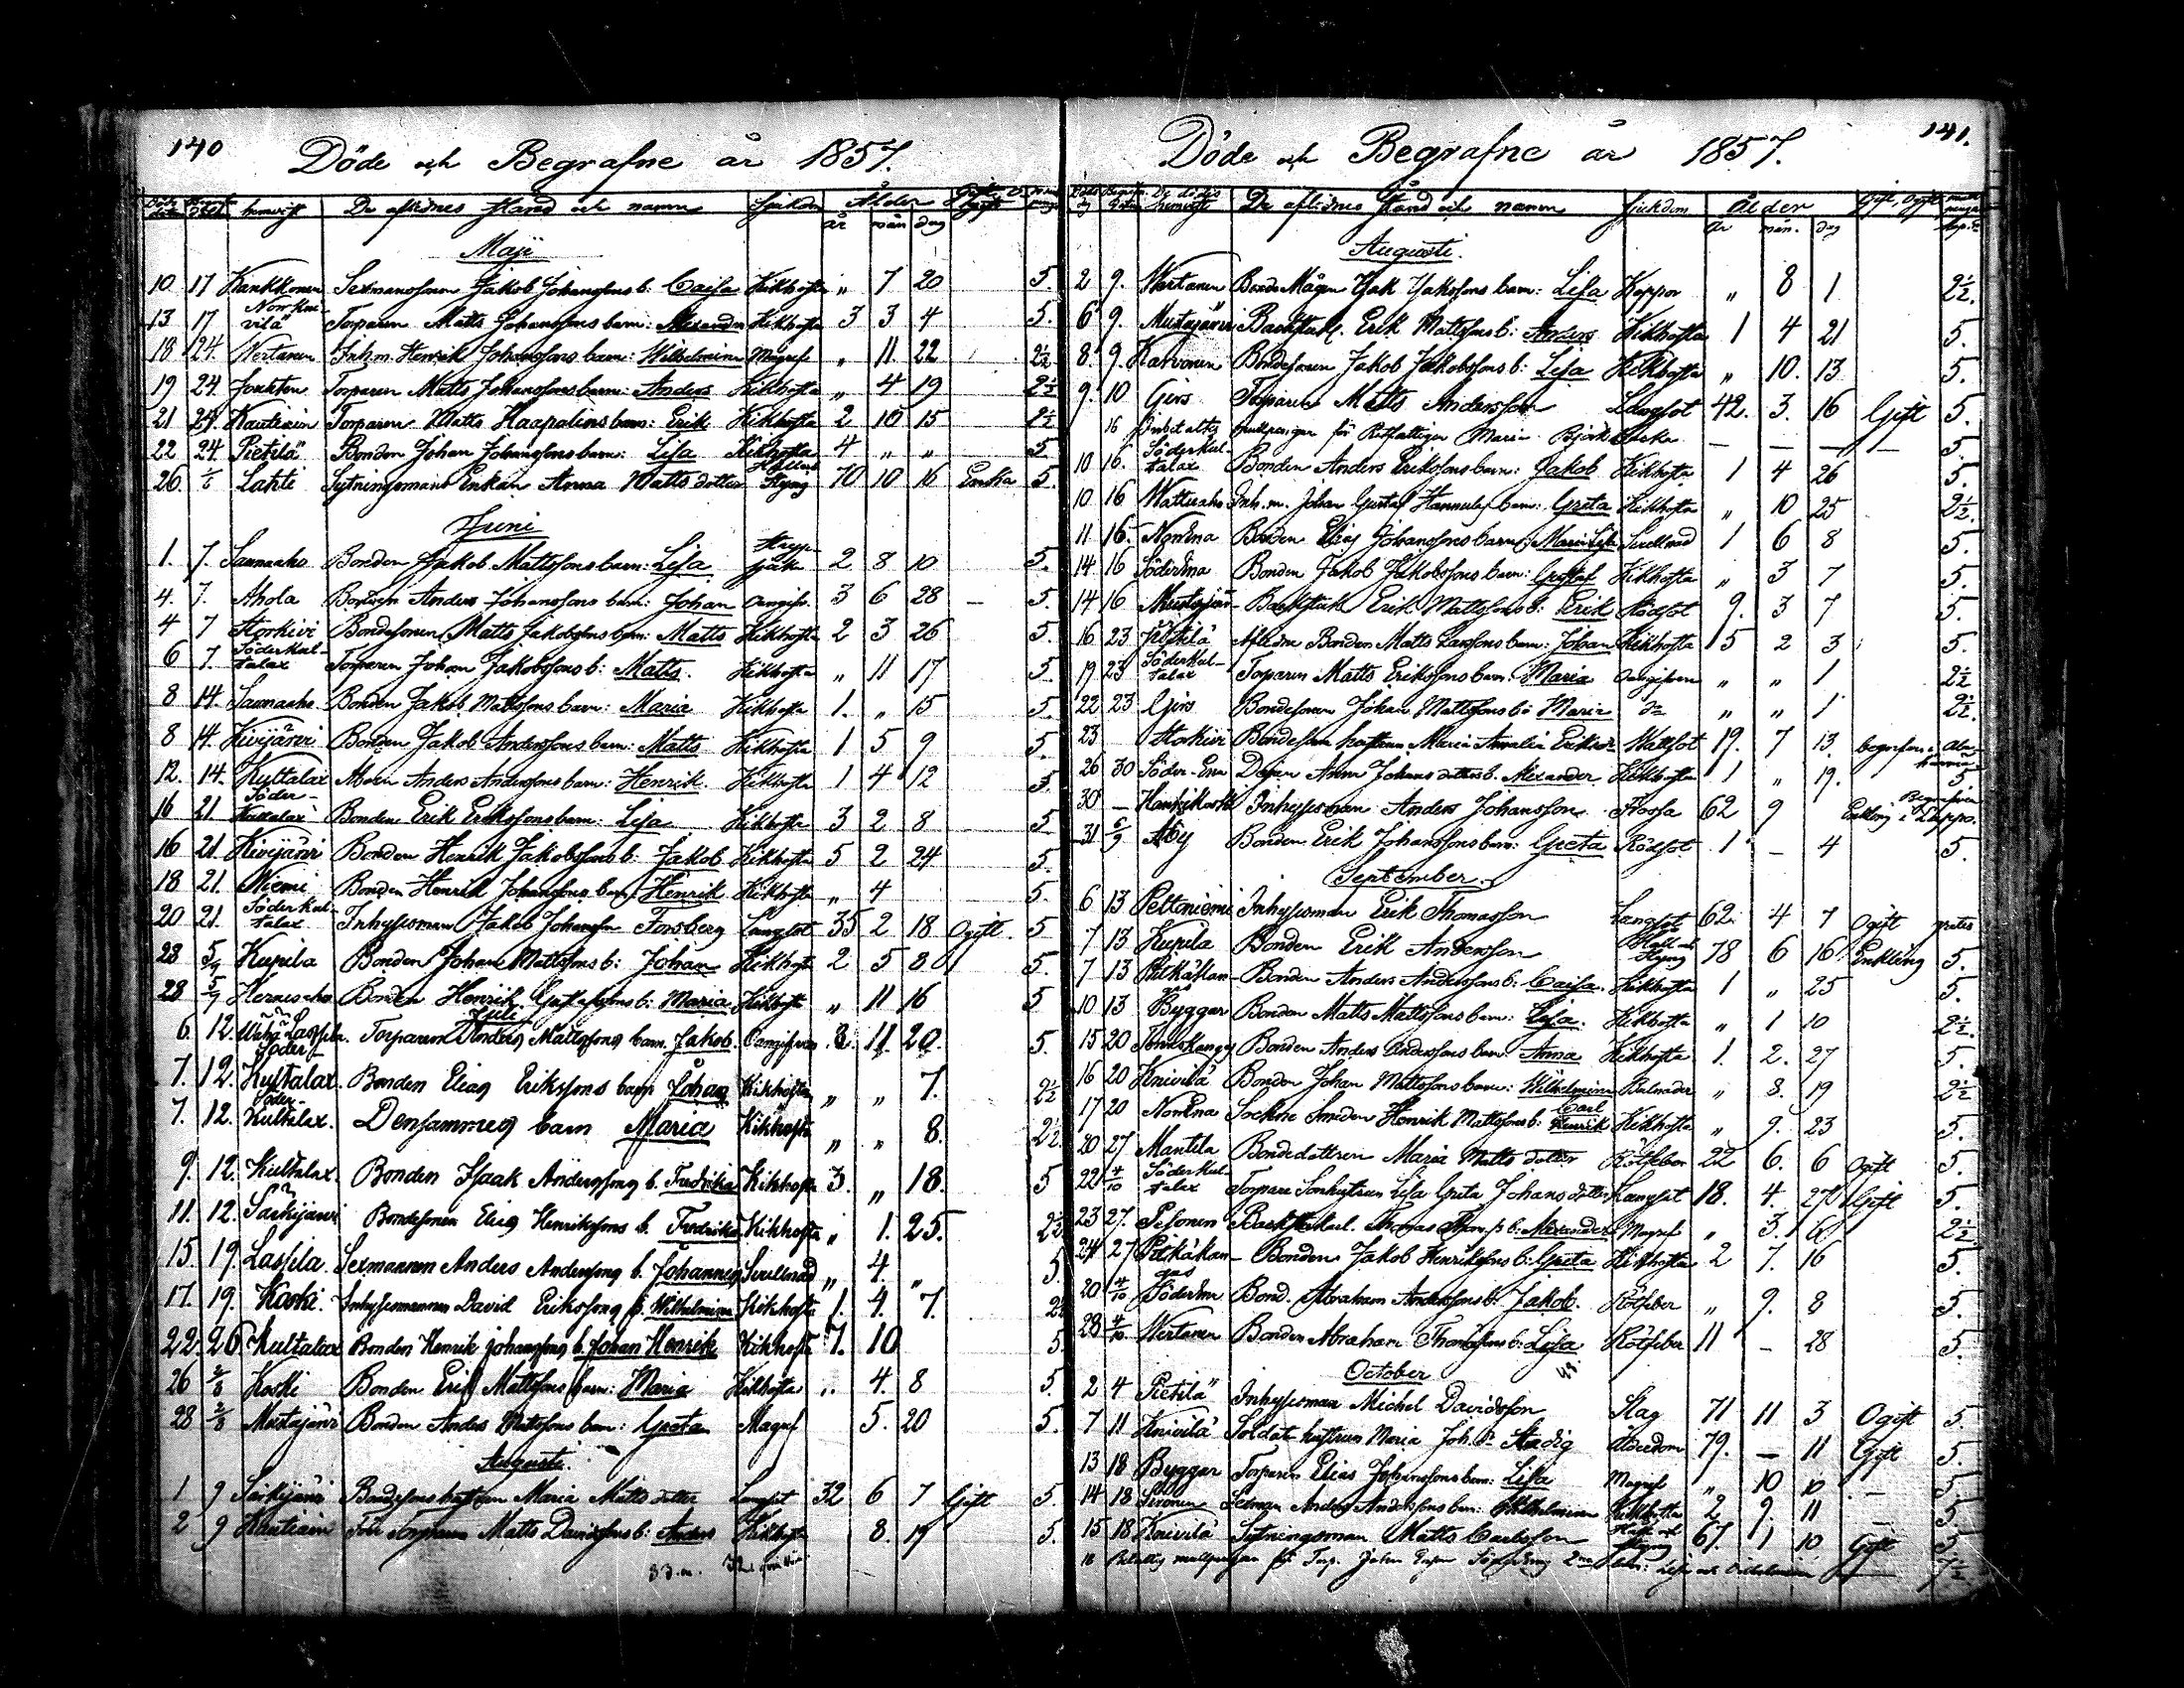 140
Döde och Begrafne år 1857.
hemvist De aflidnes stånd och namn Sjukdom Ålder
år mån dag
Maji
10 17 Kankkonen Sexmansonen Jakob Johanssons b: Caisa Kikhosta " 7 20 5.
13 17 Torparen Matts Johanssons barn: Alexander Kikhosta 3 3 4 5.
18 24. Wertanen Inh.m. Henrik Johanssons barn: Wilhelmina Magref " 11 22 2½
19 24. Torparen Matts Johanssons barn: Anders Kikhosta " 4 19 2½
21 24. Kautiain Torparen Matts Haapalins barn: Erik Kikhosta 2 10 15 2½
22 24. Pietilä Bonden Johan Johanssons barn: Lisa Kikhosta 4 " " 5
26. Lahti Sytningsmans Enkan Anna Matts dotter Håll och Styng 70 10 16 Enka 5.
Juni
1. 7. Saunaaho Bonden Jakob Mattssons barn: Lisa 2 8 10 5.
4. 7. Ahola Bonden Anders Johanssons barn: Johan Oangifv. 3 6 28 – 5.
4 7 Storkivi Bondesonen Matts Jakobssons barn: Matts Kikhosta 2 3 26 5.
6 7. Söderkul-
talax Torparen Johan Jakobssons b: Matts. Kikhosta " 11 17 5.
8 14. Saunaaho Bonden Jakob Mattssons barn: Maria Kikhosta 1. " 15 5.
8 14. Kivijärvi Bonden Jakob Anderssons barn: Matts Kikhosta 1 5 9 5.
12. 14. Kultalax Anders Anderssons barn: Henrik Kikhosta 1 4 12 5
16 21 Söder-
Kultalax Bonden Erik Erikssons barn: Lisa Kikhosta 3 2 8 5
16 21. Kivijärvi Bonden Henrik Jakobssons b: Jakob Kikhosta 5 2 24 5.
18 21. Niemi Bonden Henrik Johanssons barn: Henrik Kikhosta " 4 5.
20 21. Söderkul-
talax Inhysesman Jakob Johansson Forsberg Lungsot 35 2 18 Ogift. 5
28 5/7 Kupila Bonden Johan Mattssons b: Johan Kikhosta 2 5 8 5.
28 5/7 Hernesaho Bonden Henrik Gustafssons b: Maria Kikhosta " 11 16 5
Juli
6. 12. Wähä Lassila Torparen Anders Mattssons barn. Jakob. Oangifven 8. 11. 20. 5.
7. 12. Söder-
Kultalax. Bonden Elias Erikssons barn Johan Kikhosta " " 7. 2½
7. 12. Söder-
Kultalax. Densammes barn Maria Kikhosta " " 8. 2½
9. 12. Kultalax. Bonden Isaak Anderssons b. Fredrika Kikhosta 3. " 18. 5
11. 12. Särkijärvi Bondesonen Elias Henrikssons b. Fredrika Kikhosta " 1. 25. 2½
15. 19. Lassila. Sexmannen Anders Anderssons b. Johannes Svullnad " 4. " 5.
17. 19. Koski. Inhysesmannen David Erikssons b. Wilhelmina Kikhosta 1. 4. 7. 2½
22. 26 Kultalax Bonden Henrik Johanssons b. Johan Henrik Kikhosta 7. 10 5.
26 2/8 Koski Bonden Erik Mattssons barn: Maria Kikhosta " 4. 8 5.
28 2/8 Mustajärvi Bonden Anders Mattssons barn: Greta Magref 5. 20 5.
Augusti.
1 9 Särkijärvi Bondesons hustrun Maria Matts dotter Lungsot 32 6 7 Gift 5.
2 9 Kautiain Torparen Matts Davidssons b: Anders Kikhosta 8. 19 5.
141.
Döde och Begrafne år 1857.
De dödes hemvist De aflidnes stånd och namn Sjukdom Ålder Gift, Ogift
år mån. dag
Augusti.
2 9. Wertanen Bonde Mågen Isak Isakssons barn: Lisa Koppor " 8 1 2½.
6 9. Mustajärvi Backstuk. Erik Mattssons b: Anders Kikhosta 1 4 21 5.
8. 9. Karvonen Bondesonen Jakob Jakobssons b: Lisa Kikhosta " 10. 13 5.
9. 10 Girs Torparen Matts Andersson Lungsot 42. 3. 16 Gift 5.
16 Inbetaltes mullpengar för Rotfattiga Maria Björkbacka — — — — 5.
10 16. Söderkul-
talax Bonden Anders Erikssons barn: Jakob Kikhosta 1 4 26 5.
10 16 Inh.m. Johan Gustaf barn: Greta Kikhosta " 10 25 2½.
11 16. NorrEna Bonden Elias Johanssons barn: Maria Lisa Svullnad 1 6 8 5.
14 16 SöderEna Bonden Jakob Jakobssons barn: Gustaf Kikhosta " 3 7 5.
14 16 Mustajärvi Backstuk Erik Mattssons b: Erik Rödsot 9. 3 7 5.
16 23 Pietilä Aflidne Bonden Matts Larssons barn: Johan Kikhosta 5 2 3 5.
19 23 Söderkul-
talax Torparen Matts Erikssons barn: Maria Oangifven " " 1 2½
22 23 Girs Bondesonen Johan Mattssons b: Maria do " " 1 2½.
23 Storkivi Bondeson hustrun Maria Amalia Eriksdr Wattsot 19. 7 13. begrafven i
26 30 Söder-Ena Dejan Anna Johans dotters b. Alexander Kikhosta 1 " 19. 5
30 – Inhysesman Anders Johansson Frossa 62 9 Enkling Begrafven i Lappo.
31 6/9 Åby Bonden Erik Johanssons barn: Greta Rödsot 1 – 4 5.
September.
6 13 Peltoniemi Inhysesman Erik Thomasson Lungsot 62. 4 7 Ogift gratis
7 13 Kupila Bonden Erik Andersson Håll och Styng 78 6 16 Enkling 5.
7 13 Pitkäkan-
gas Bonden Anders Anderssons b: Caisa. Kikhosta 1 " 25 5.
10 13 Byggar Bonden Matts Mattssons barn: Lisa. Kikhosta " 1 10 2½.
15 20 Bonden Anders Anderssons barn: Anna Kikhosta 1. 2. 27 5.
16 20 Knivilä Bonden Johan Mattssons barn: Wilhelmina " 8. 19 2½
17 20 NorrEna Sockne Smeden Henrik Mattssons b: Carl Henrik Kikhosta " 9. 23 5.
20 27 Mantila Bondedottren Maria Matts dotter Rötfeber 22 6. 6 Ogift 5.
22 4/10 Söderkul-
talax Torpare Sonhustrun Lisa Greta Johans dotter Lungsot 18. 4. 27 Gift 5.
23 27. Pesonen Backstukarl. Thomas b: Alexander Magref " 3. 6 2½.
24 27 Pitkäkan-
gas Bonden Jakob Henrikssons b: Greta Kikhosta 2 7. 16 5.
20 4/10 SöderEna Bond. Abraham Anderssons b: Jakob. Rötfeber " 9. 8 5.
28 4/10 Wertanen Bonden Abraham Thomassons b: Lisa Rötfeber 11 – 28 5.
October
2 4 Pietilä Inhysesman Michel Davidsson Slag 71 11 3 Ogift 5.
7 11 Knivilä Soldats hustrun Maria Joh. dr Stadig Ålderdom 79. – 11 Gift 5.
13 18 Byggar Torparen Elias Johanssons barn: Lisa Magref " 10 10 – 5
14 18 Sironen Sexman Anders Anderssons barn: Wilhelmina Kikhosta 2 9. 11 – 5
15 18 Knivilä Sytningsman Matts Carlsson Håll och Styng 67. 1 10 Gift 5
18 mullpengar för Torp. Johan barn: Lisa och Wilhelmina 7½